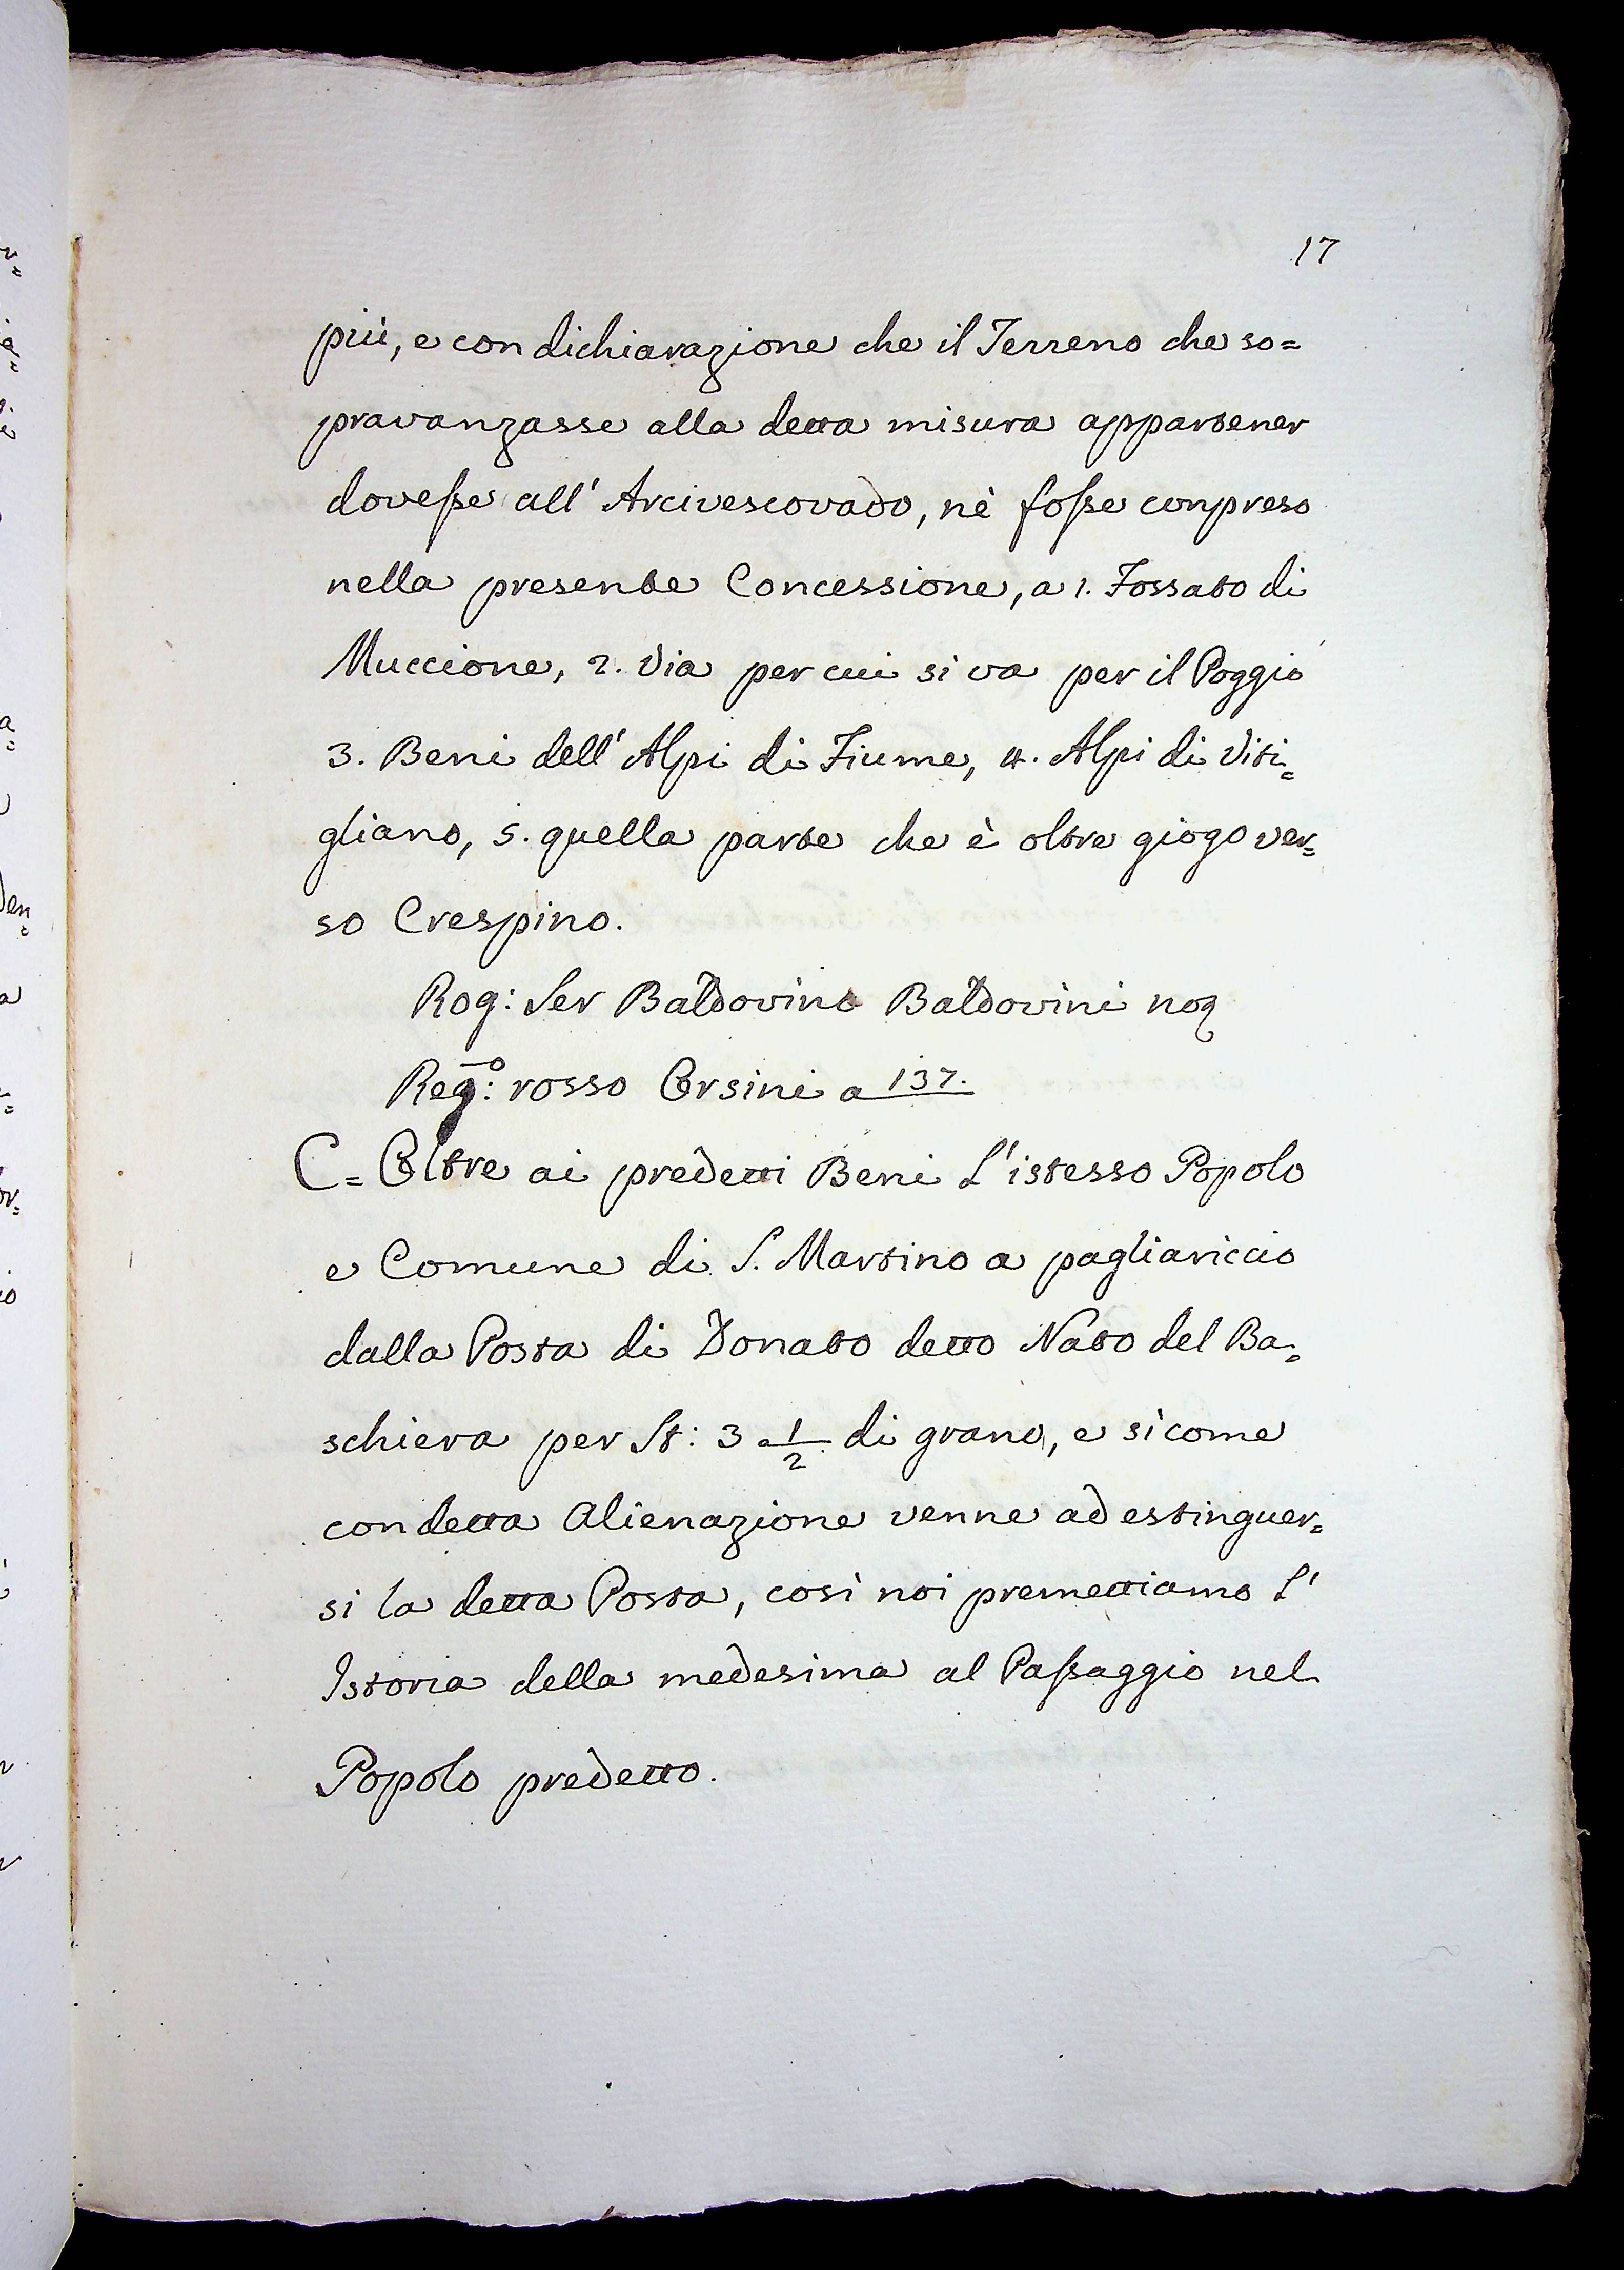 17
più, e con dichiarazione che il Terreno che so=
pravanzasse alla detta misura appartener
dovesse all' Arcivescovado, nè fosse conpreso
nella presente Concessione, a 1. Fossato di
Muccione, 2. Via per cui si va per il Poggio
3. Beni dell' Alpi di Fiume, 4. Alpi di Viti=
gliano, 5. quella parte che è oltre giogo ver=
so Crespino.
Rog: Ser Baldovino Baldovini not
Reg:o rosso Orsini a 137.
C = Oltre ai predetti Beni L'istesso Popolo
e Comune di S. Martino a pagliariccio
dalla Posta di Donato detto Nato del Ba=
schiera per St: 3 1/2 di grano, e sicome
con detta Alienazione venne ad estinguer=
si la detta Posta, così noi premettiamo l'
Istoria della medesima al Passaggio nel
Popolo predetto.